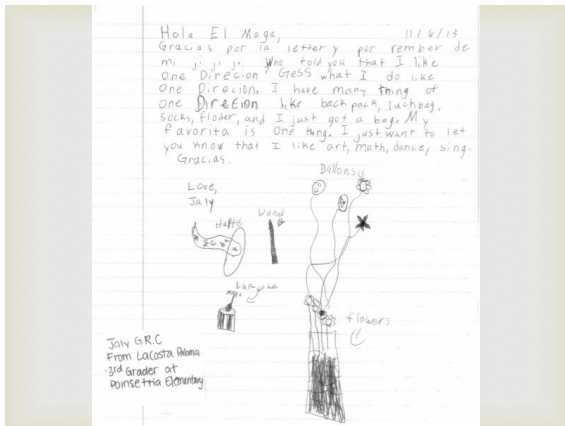 Hola El Maga, 11/6/13
Gracias por la letter y por rember de
mi ji ji ji. Who told you that I like
One Direcion, Gess what I do like
One Direcion. I have many thing of
One Direction like back pack, luchbag,
socks, floder, and I just got a bag. My
favorita is One thng. I just want to let
you know that I like art, math, dance, sing.
Gracias.
Ballons
Love,
Jaly
Hat
Wand
Maga
flowers
Jaly G.R.C
From LaCosta Paloma
-3rd Grader at
Poinsettia Elementary